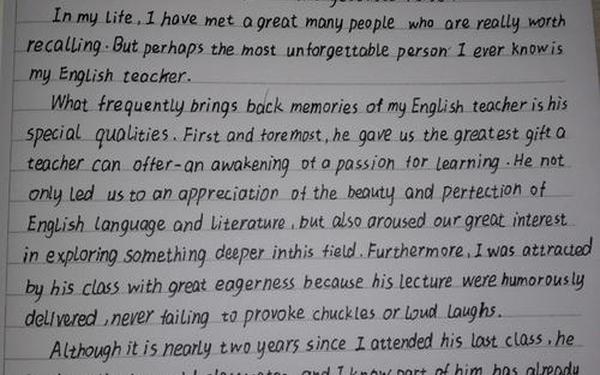 In my life, I have met a great many people who are really worth
recalling. But perhaps the most unforgettable person I ever know is
my English teacher.
What frequently brings back memories of my English teacher is his
special qualities. First and foremost, he gave us the greatest gift a
teacher can offer-an awakening of a passion for learning. He not
only led us to an appreciation of the beauty and perfection of
English language and literature, but also aroused our great interest
in exploring something deeper in this field. Furthermore, I was attracted
by his class with great eagerness because his lecture were humorously
delivered, never failing to provoke chuckles or loud laughs.
Although it is nearly two years since I attended his last class, he
and I know part of him has already